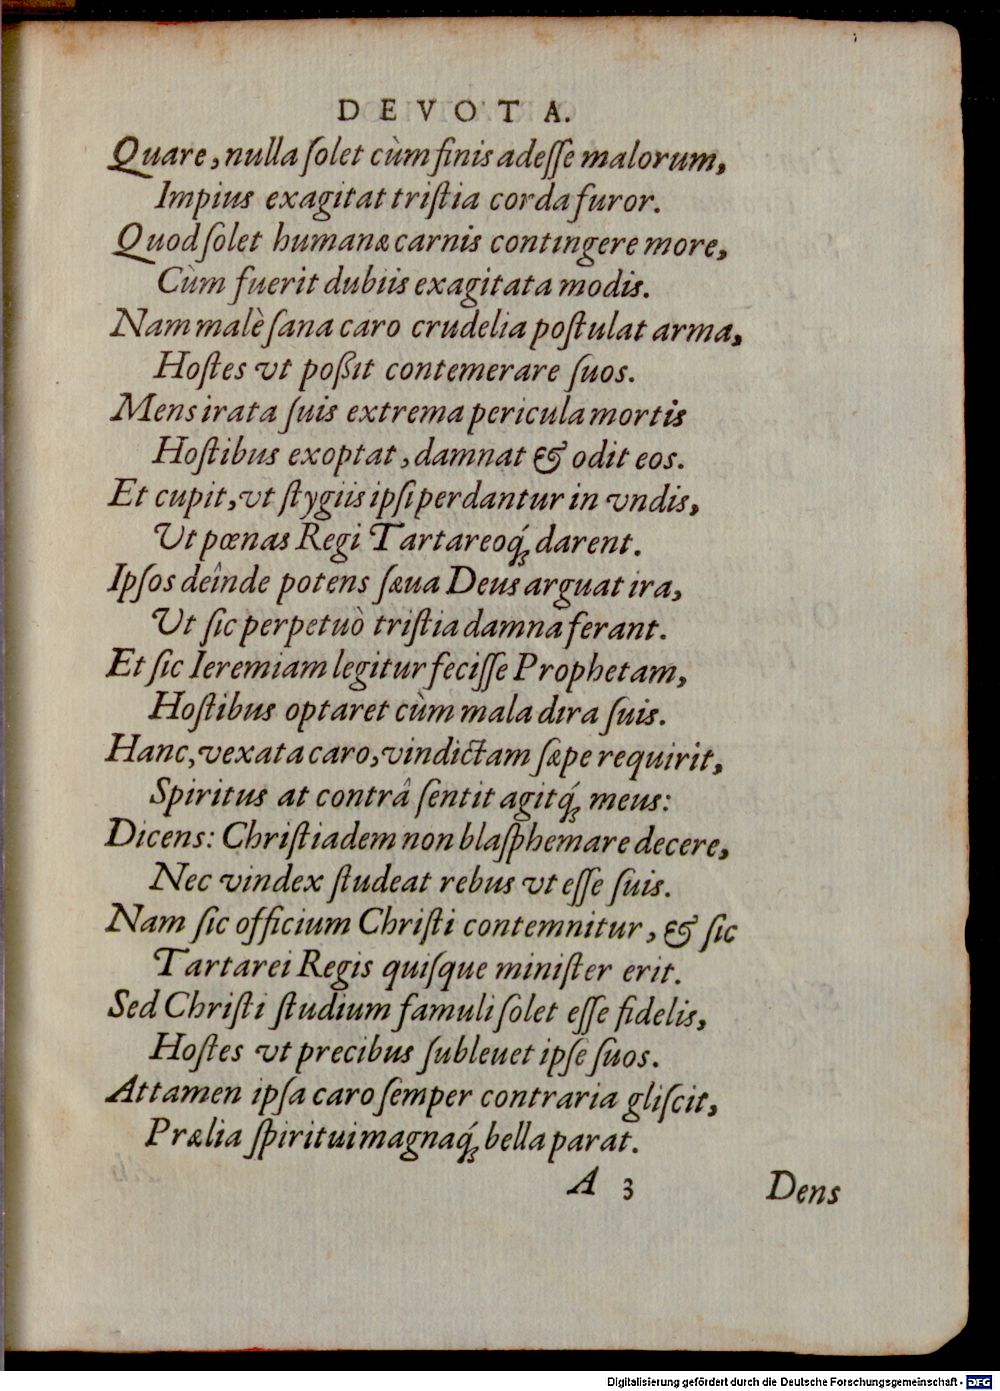 DEVOTA.
Quare, nulla ſolet cùm finis adeſſe malorum,
Impius exagitat triſtia corda furor.
Quod ſolet humanæ carnis contingere more,
Cùm fuerit dubiis exagitata modis.
Nam malè ſana caro crudelia poſtulat arma,
Hoſtes vt poßit contemerare ſuos.
Mens irata ſuis extrema pericula mortis
Hoſtibus exoptat, damnat & odit eos.
Et cupit, vt ſtygiis ipſi perdantur in vndis,
Ut pœnas Regi Tartareoq́; darent.
Ipſos deînde potens ſæua Deus arguat ira,
Ut ſic perpetuò triſtia damna ferant.
Et ſic Ieremiam legitur feciſſe Prophetam,
Hoſtibus optaret cùm mala dira ſuis.
Hanc, vexata caro, vindictam ſæpe requirit,
Spiritus at contrâ ſentit agitq́; meus:
Dicens: Chriſtiadem non blaſphemare decere,
Nec vindex ſtudeat rebus vt eſſe ſuis.
Nam ſic officium Chriſti contemnitur, & ſic
Tartarei Regis quiſque miniſter erit.
Sed Chriſti ſtudium famuli ſolet eſſe fidelis,
Hoſtes vt precibus ſubleuet ipſe ſuos.
Attamen ipſa caro ſemper contraria gliſcit,
Prælia ſpiritui magnaq́; bella parat.
A 3 Dens
Digitalisierung gefördert durch die Deutsche Forschungsgemeinschaft - DFG